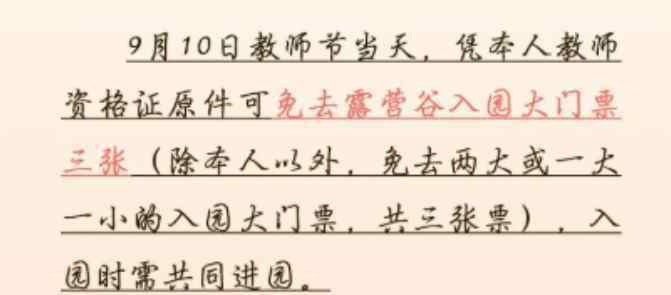 9月10日教师节当天，凭本人教师
资格证原件可免去露营谷入园大门票
三张（除本人以外，免去两大或一大
一小的入园大门票，共三张票），入
园时需共同进园。